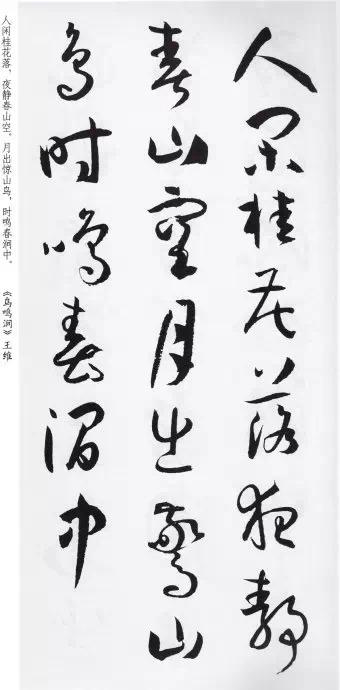 人闲桂花落夜静
春山空月出惊山
鸟时鸣春涧中
人闲桂花落，夜静春山空。月出惊山鸟，时鸣春涧中。
《鸟鸣涧》王维